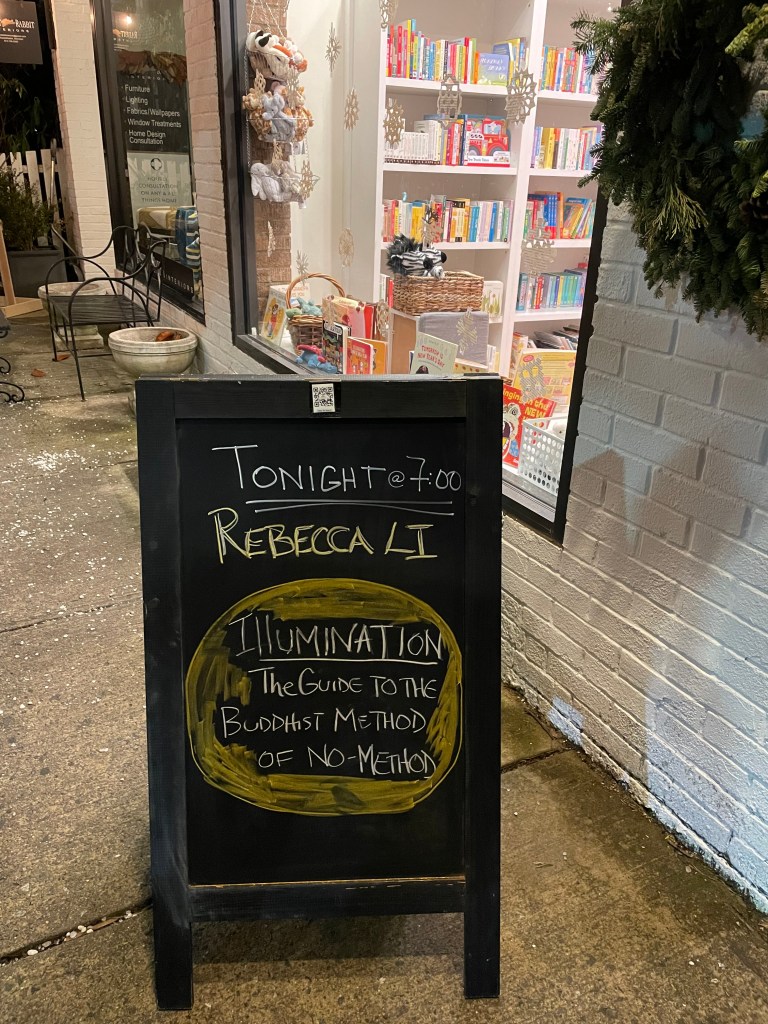 RABBIT
Furniture
Lighting
Fabrics/Wallpapers
Window Treatments
Home Design
Consultation
TONIGHT @ 7:00
REBECCA LI
ILLUMINATION
The GUIDE TO THE
BUDDHIST METHOD
OF NO-METHOD